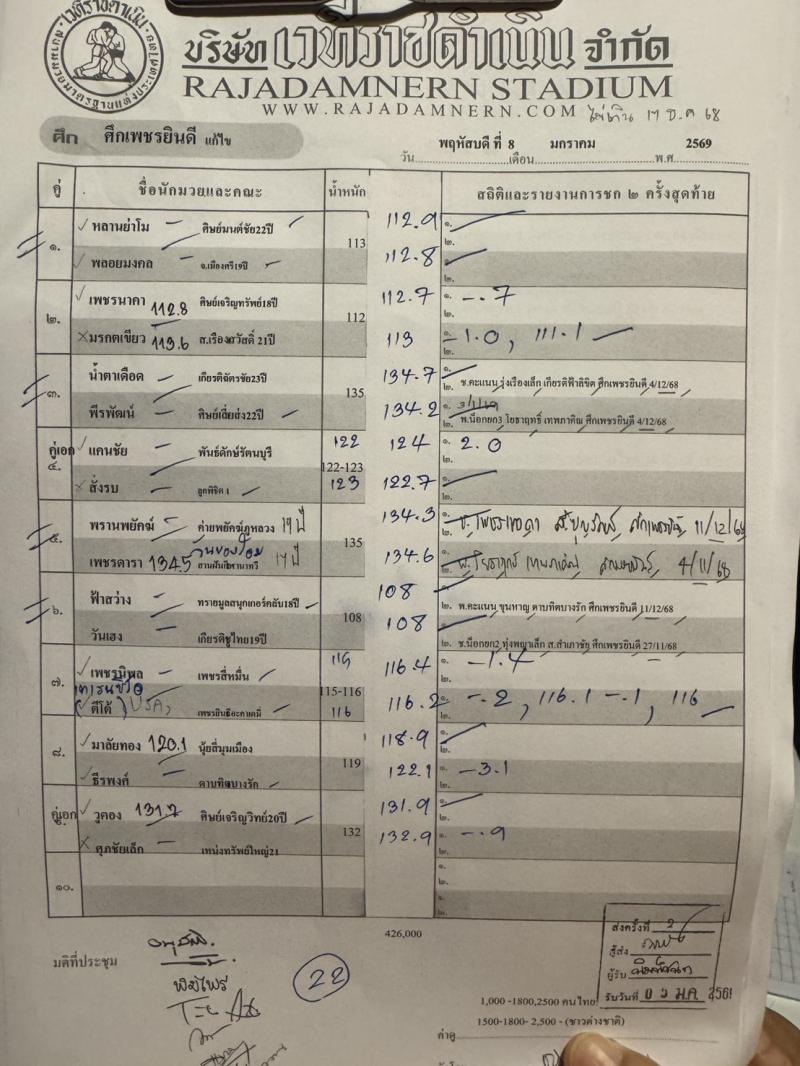 บริษัท เวทีราชดำเนิน จำกัด
RAJADAMNERN STADIUM
WWW.RAJADAMNERN.COM
ศึก ศึกเพชรยินดี แก้ไข
พฤหัสบดี ที่ 8 มกราคม 2569
วัน เดือน พ.ศ.
คู่ ชื่อนักมวยและคณะ น้ำหนัก สถิติและรายงานการชก ๒ ครั้งสุดท้าย
๑. หลานย่าโม ศิษย์มนต์ชัย22ปี 113 112.9 ๑. ๒.
พลอยมงคล จ.เมืองศรี19ปี 112.8 ๑. ๒.
๒. เพชรนาคา 112.8 ศิษย์เจริญทรัพย์18ปี 112 112.7 ๑. -.7 ๒.
มรกตเขียว 113.6 ส.เรืองสวัสดิ์ 21ปี 113 ๑. -1.0, 111.1 ๒.
๓. น้ำตาเดือด เกียรติฉัตรชัย23ปี 135 134.7 ๑.
๒. ช.คะแนน รุ่งเรืองเล็ก เกียรติฟ้าลิขิต ศึกเพชรยินดี 4/12/68
พีรพัฒน์ ศิษย์เสี่ยส่ง22ปี 134.2 ๑.
๒. พ.น็อกยก3 โยธาฤทธิ์ เทพภาคิณ ศึกเพชรยินดี 4/12/68
คู่เอก ๔. แคนชัย พันธ์ดักษ์รัตนบุรี 122 122-123 124 ๑. 2.0 ๒.
สั่งรบ ลูกพิชิต 1 123 122.7 ๑. ๒.
๕. พรานพยัคฆ์ ค่ายพยัคฆ์ภูหลวง 19 ปี 135 134.3 ๑. 11/12/68
เพชรดารา 134.5 19 ปี 134.6 ๑. 4/11/68
๖. ฟ้าสว่าง ทรายมูลสนุกเกอร์คลับ18ปี 108 108 ๑.
๒. พ.คะแนน ขุนหาญ ดาบทิตบางรัก ศึกเพชรยินดี 11/12/68
วันเฮง เกียรติชูไทย19ปี 108 ๑.
๒. ช.น็อกยก2 ทุ่งพญาเล็ก ส.สำเภาชัย ศึกเพชรยินดี 27/11/68
๗. เพชรนิพล เพชรสี่หมื่น 115 115-116 116.4 ๑. -1.4 ๒.
ดีโด้ เพชรยินดีอะคาเดมี่ 116 116.2 ๑. -.2, 116.1 -.1, 116 ๒.
๘. มาลัยทอง 120.1 นุ้ยสี่มุมเมือง 119 118.9 ๑. ๒.
ธีรพงศ์ ดาบทิตบางรัก 122.1 ๑. -3.1 ๒.
คู่เอก วูคอง 131.7 ศิษย์เจริญวิทย์20ปี 132 131.9 ๑. ๒.
ศุภชัยเล็ก เหน่งทรัพย์ใหญ่21 132.9 ๑. -.9 ๒.
๑๐. ๑. ๒.
๑. ๒.
426,000
มติที่ประชุม
22
ส่งครั้งที่ 2
ผู้ส่ง
ผู้รับ
รับวันที่
1,000 -1800,2500 คนไทย
1500-1800- 2,500 - (ชาวต่างชาติ)
ค่าดู